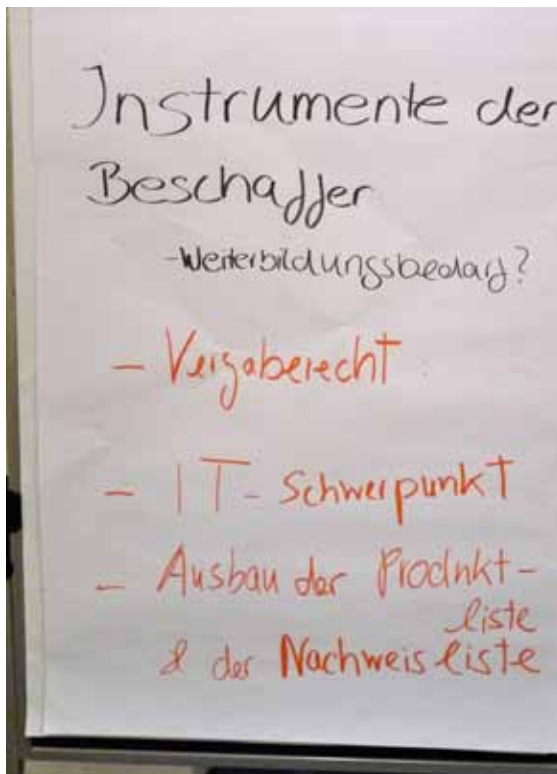 Instrumente der
Beschaffer
-Weiterbildungsbedarf?
- Vergaberecht
- IT- Schwerpunkt
- Ausbau der Produkt-
liste
& der Nachweisliste